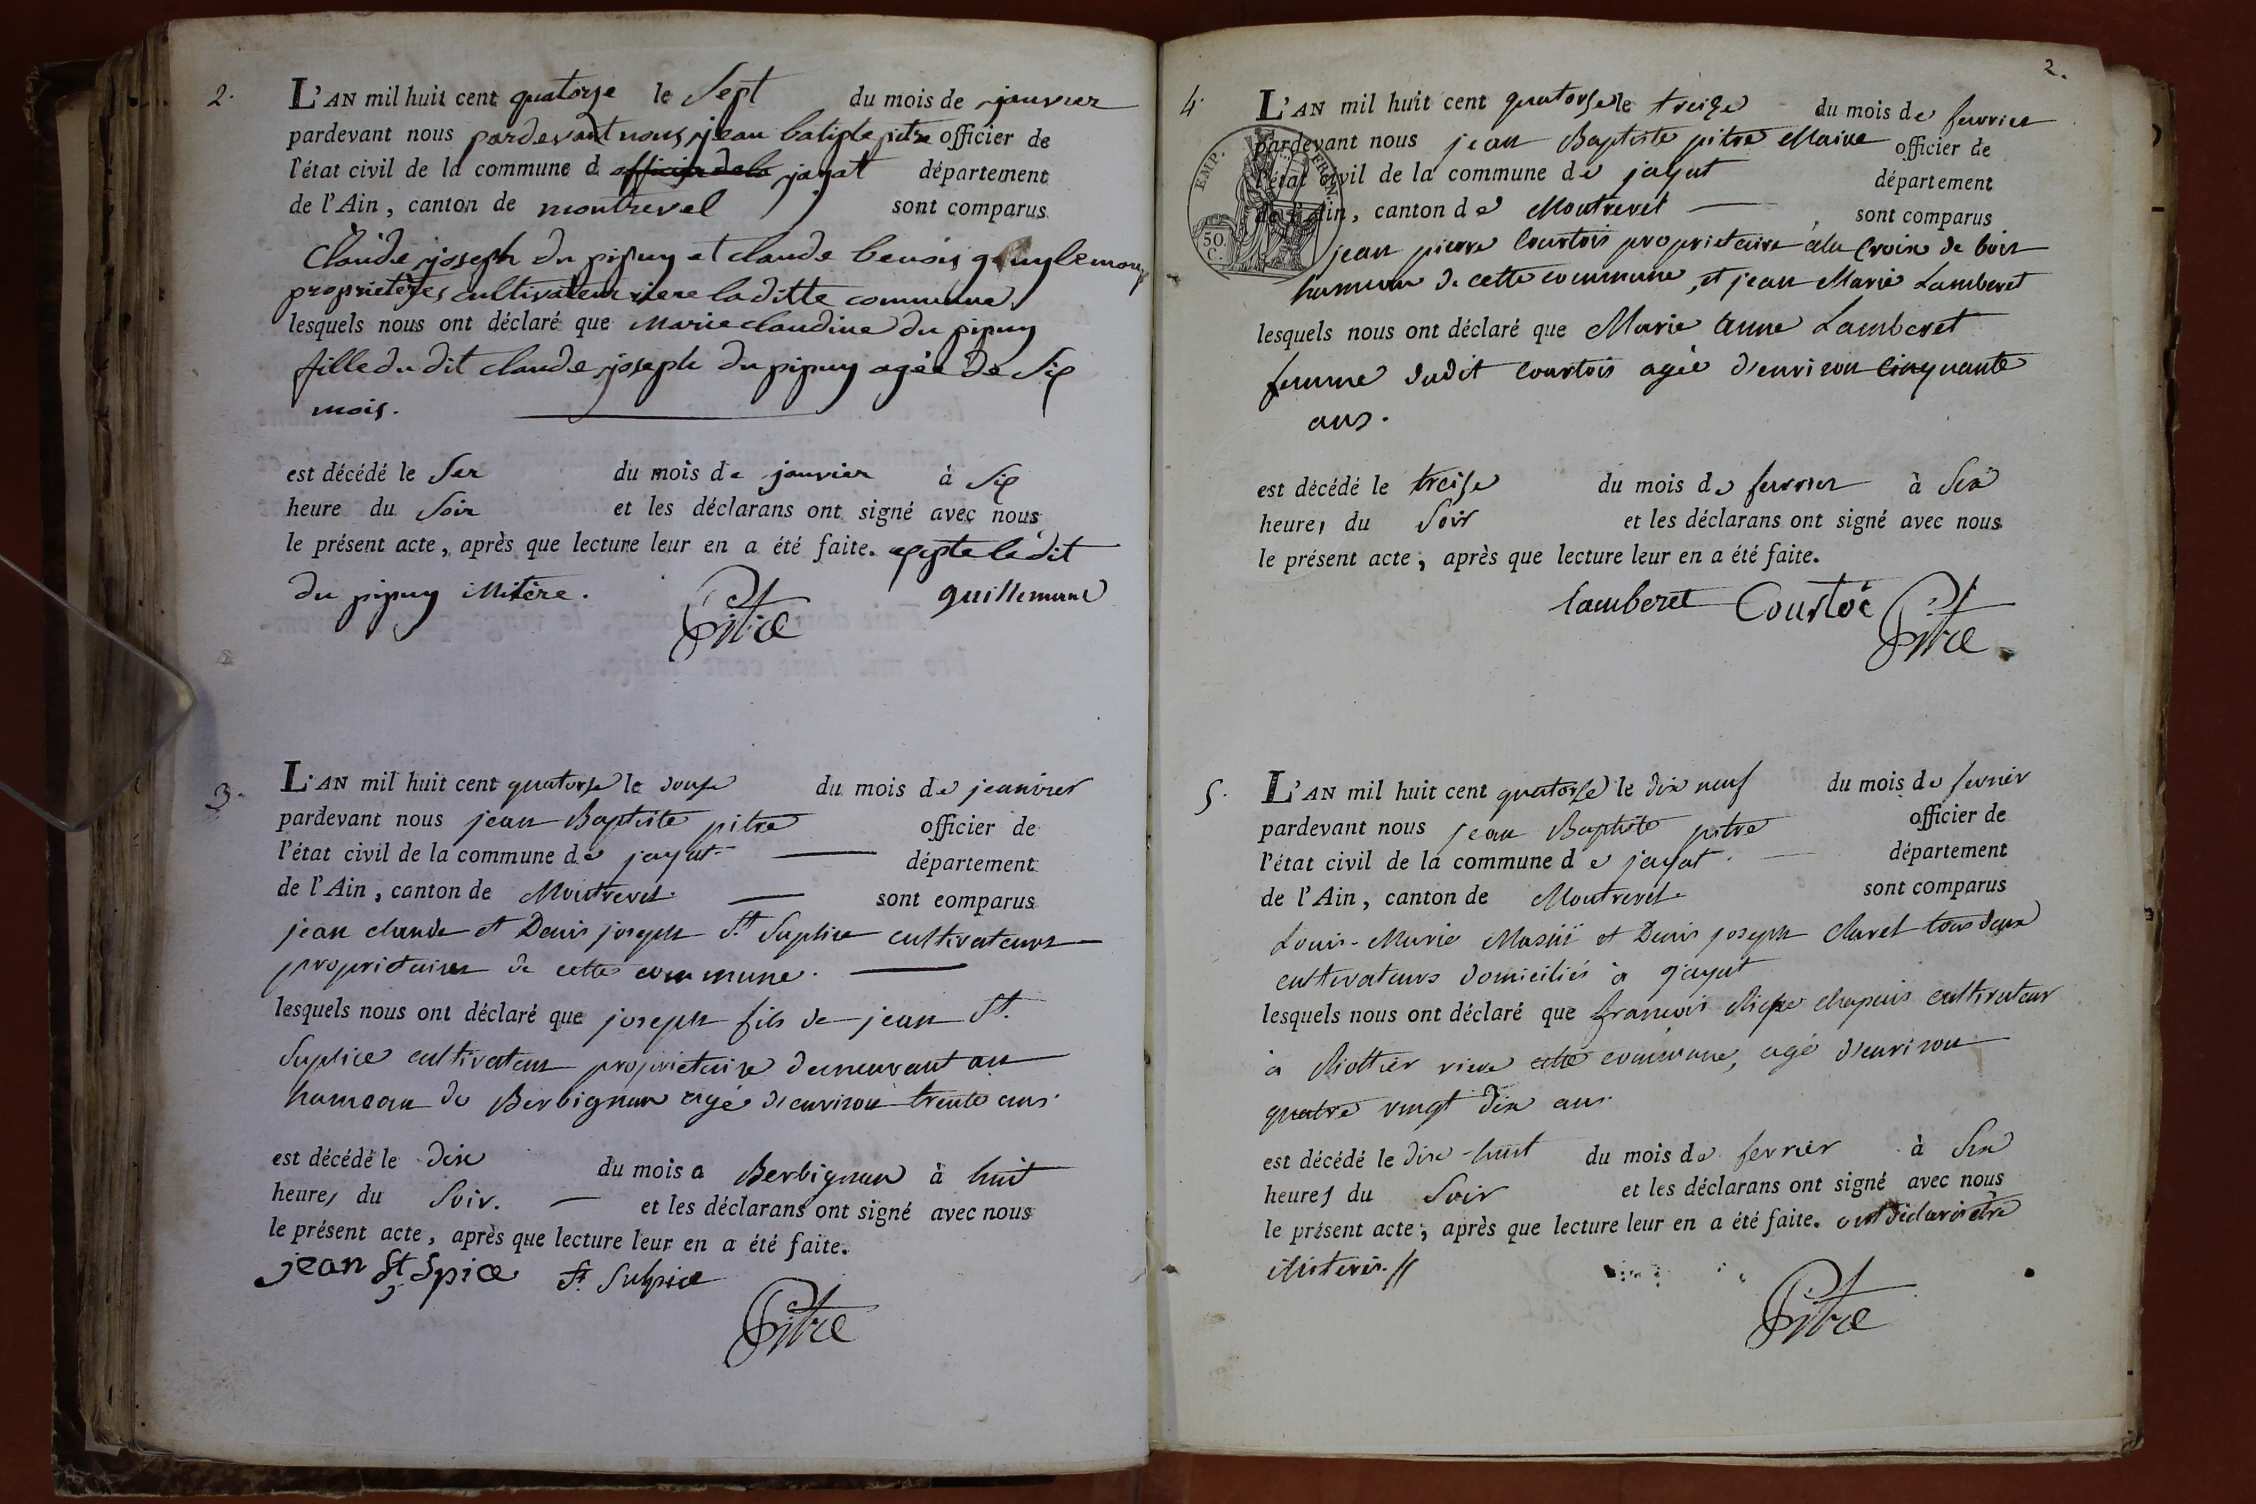 2.
L'AN mil huit cent quatorze le Sept du mois de janvier
pardevant nous pardevant nous jean batiste pitre officier de
l'état civil de la commune d jayat département
de l'Ain, canton de montrevel sont comparus
Claude joseph du pipuy et claude benoit
proprietéres cultivateur riere laditte commune
lesquels nous ont déclaré que Marie claudine du pipuy
fille du dit claude joseph du pipuy agée de Six
mois.
est décédé le Ser du mois de janvier à Six
heure du Soir et les déclarans ont signé avec nous
le présent acte, après que lecture leur en a été faite. le dit
du pipuy illitere.
guillemaud
Pitre
3.
L'AN mil huit cent quatorse le douse du mois de jeanvier
pardevant nous jean Baptiste pitre officier de
l'état civil de la commune de jayat département
de l'Ain, canton de Montrevel. sont comparus
jean claude et Denis joseph St Suplice cultivateurs
proprietaires de cette commune.
lesquels nous ont déclaré que joseph fils de jean St.
Suplice cultivateur proprietaire demeurant au
hameau de Berbignan agé d'environ trente ans.
est décédé le dix du mois a Berbignan à huit
heures du Soir. et les déclarans ont signé avec nous
le présent acte, après que lecture leur en a été faite.
jean St Spice St. Sulpice
Pitre
2.
4.
EMP. FRAN.
50. C.
L'AN mil huit cent quatorse le treize du mois de fevrier
pardevant nous jean Baptiste pitre Maire officier de
l'état civil de la commune de jayat département
de l'Ain, canton de Montrevel sont comparus
jean pierre Courtois proprietaire à la Croix de bois
hameau de cette commune, et jean Marie Lamberet
lesquels nous ont déclaré que Marie Anne Lamberet
femme dudit Courtois agée d'environ Cinquante
ans.
est décédé le treise du mois de fevrier à Six
heures du Soir et les déclarans ont signé avec nous
le présent acte, après que lecture leur en a été faite.
lamberet Courtoi Pitre
5.
L'AN mil huit cent quatorse le dix neuf du mois de fevrier
pardevant nous jean Baptiste pitre officier de
l'état civil de la commune de jayat. département
de l'Ain, canton de Montrevel sont comparus
Louis-Marie et Denis joseph Claret tous deux
cultivateurs domiciliés à jayat
lesquels nous ont déclaré que francois chapuis cultivateur
à riere cette commune, agé d'environ
quatre vingt dix ans.
est décédé le dix-huit du mois de fevrier à Six
heures du Soir et les déclarans ont signé avec nous
le présent acte, après que lecture leur en a été faite. ont déclaré être
Pitre